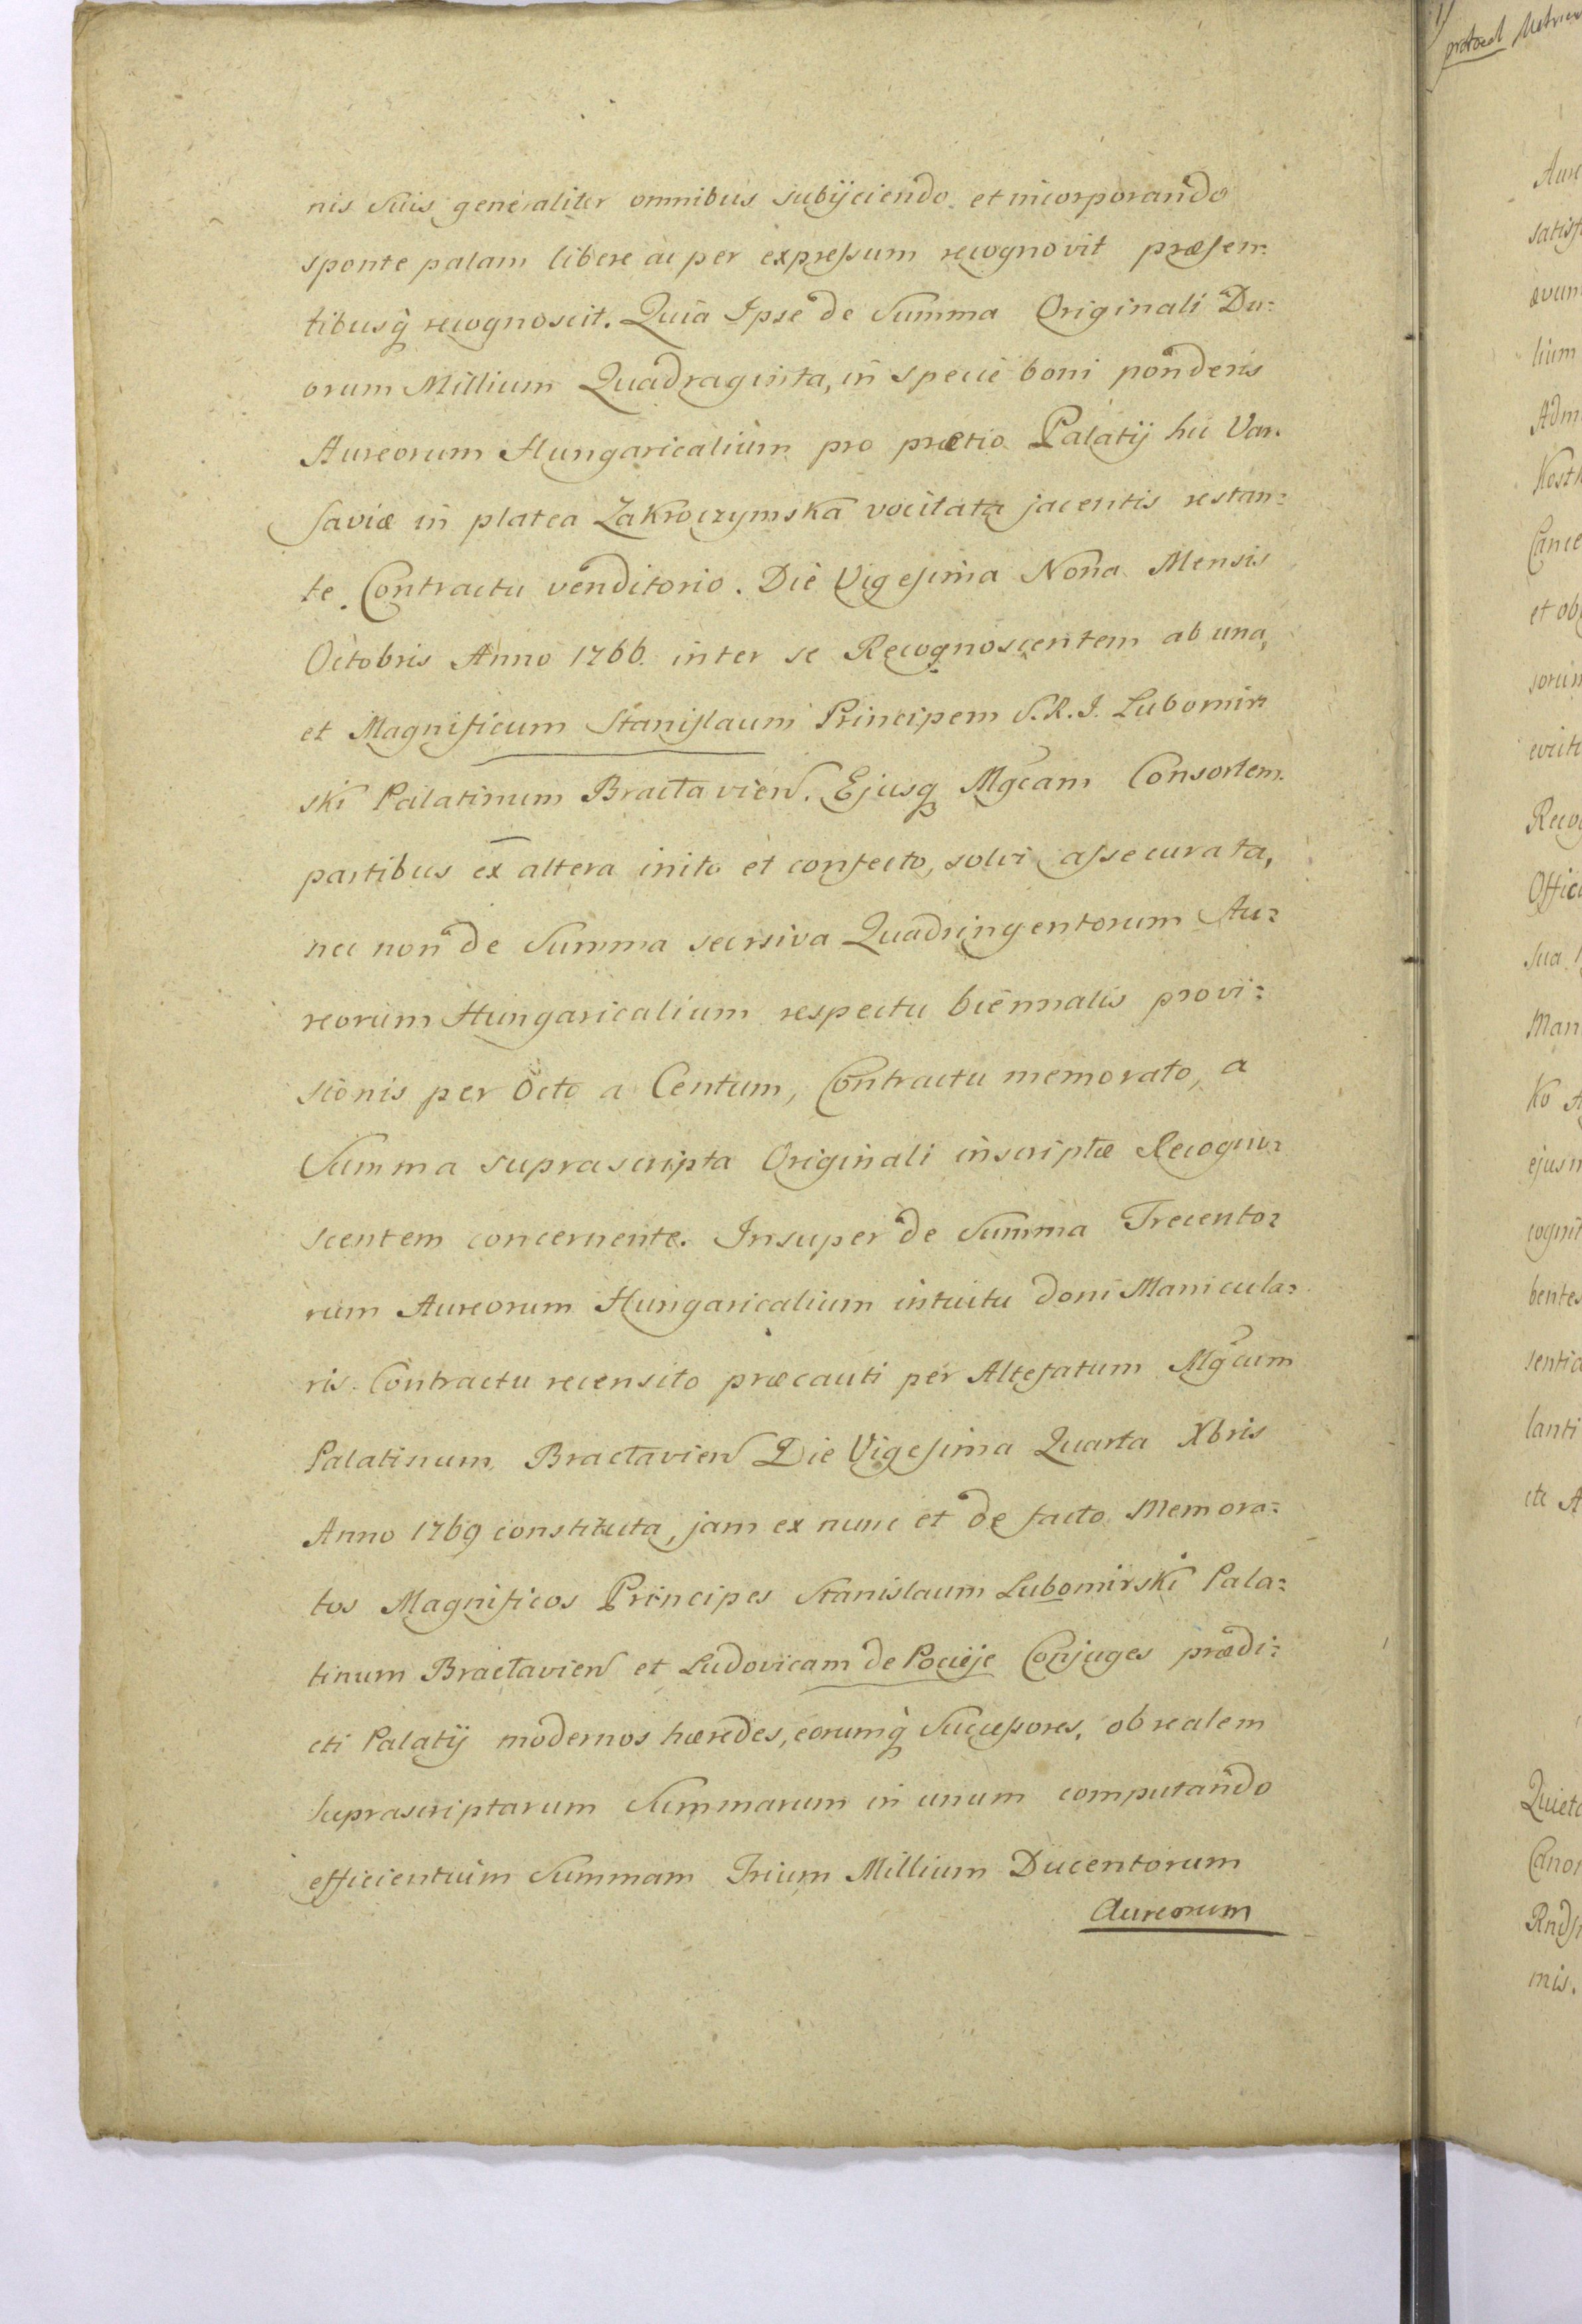 nis suis generaliter omnibus subijciendo et incorporando
sponte palam libere ac per expressum recognovit præsen:
tibusq̀ recognoscit. Quia Ipse de Summa Originali Du:
orum Millium Quadraginta, in specie boni ponderis
Aureorum Hungaricalium pro prætio Palatij hic Var:
saviæ in platea Zakroczymska vocitata jacentis restan:
te. Contractu venditorio. Die Vigesima Nona Mensis
Octobris Anno 1766. inter se Recognoscentem ab una,
et Magnificum Stanislaum Principem S.R.I. Lubomir:
ski Palatinum Bractavien. Ejusq Mgcam Consortem
partibus ex altera inito et confecto, solvi assecurata,
nec non de Summa secrsiva Quadringentorum Au:
reorum Hungaricalium respectu biennalis provi:
sionis per Octo a Centum, Contractu memorato, a
Summa suprascripta Originali inscriptæ Recogno:
scentem concernente. Insuper de Summa Trecento:
rum Aureorum Hungaricalium intuitu doni Manicula:
ris Contractu recensito præcauti per Altefatum Mgcum
Palatinum Bractavien Die Vigesima Quarta Xbris
Anno 1769 constituta, jam ex nunc et de facto Memora:
tos Magnificos Principes Stanislaum Lubomirski Pala:
tinum Bractavien et Ludovicam de Pocieje Conjuges prædi:
cti Palatij modernos hæredes, eorumq̀ Successores, ob realem
suprascriptarum Summarum in unum computando
efficientium Summam Trium Millium Ducentorum
Aureorum
protocol
Aure
satisf
lium
Adm
Kostk
Cance
et ob
Reco
Offici
sua
Man
Ko
ejusm
cognit
bentes
sentia
lanti
Quieta
Canon
mis.